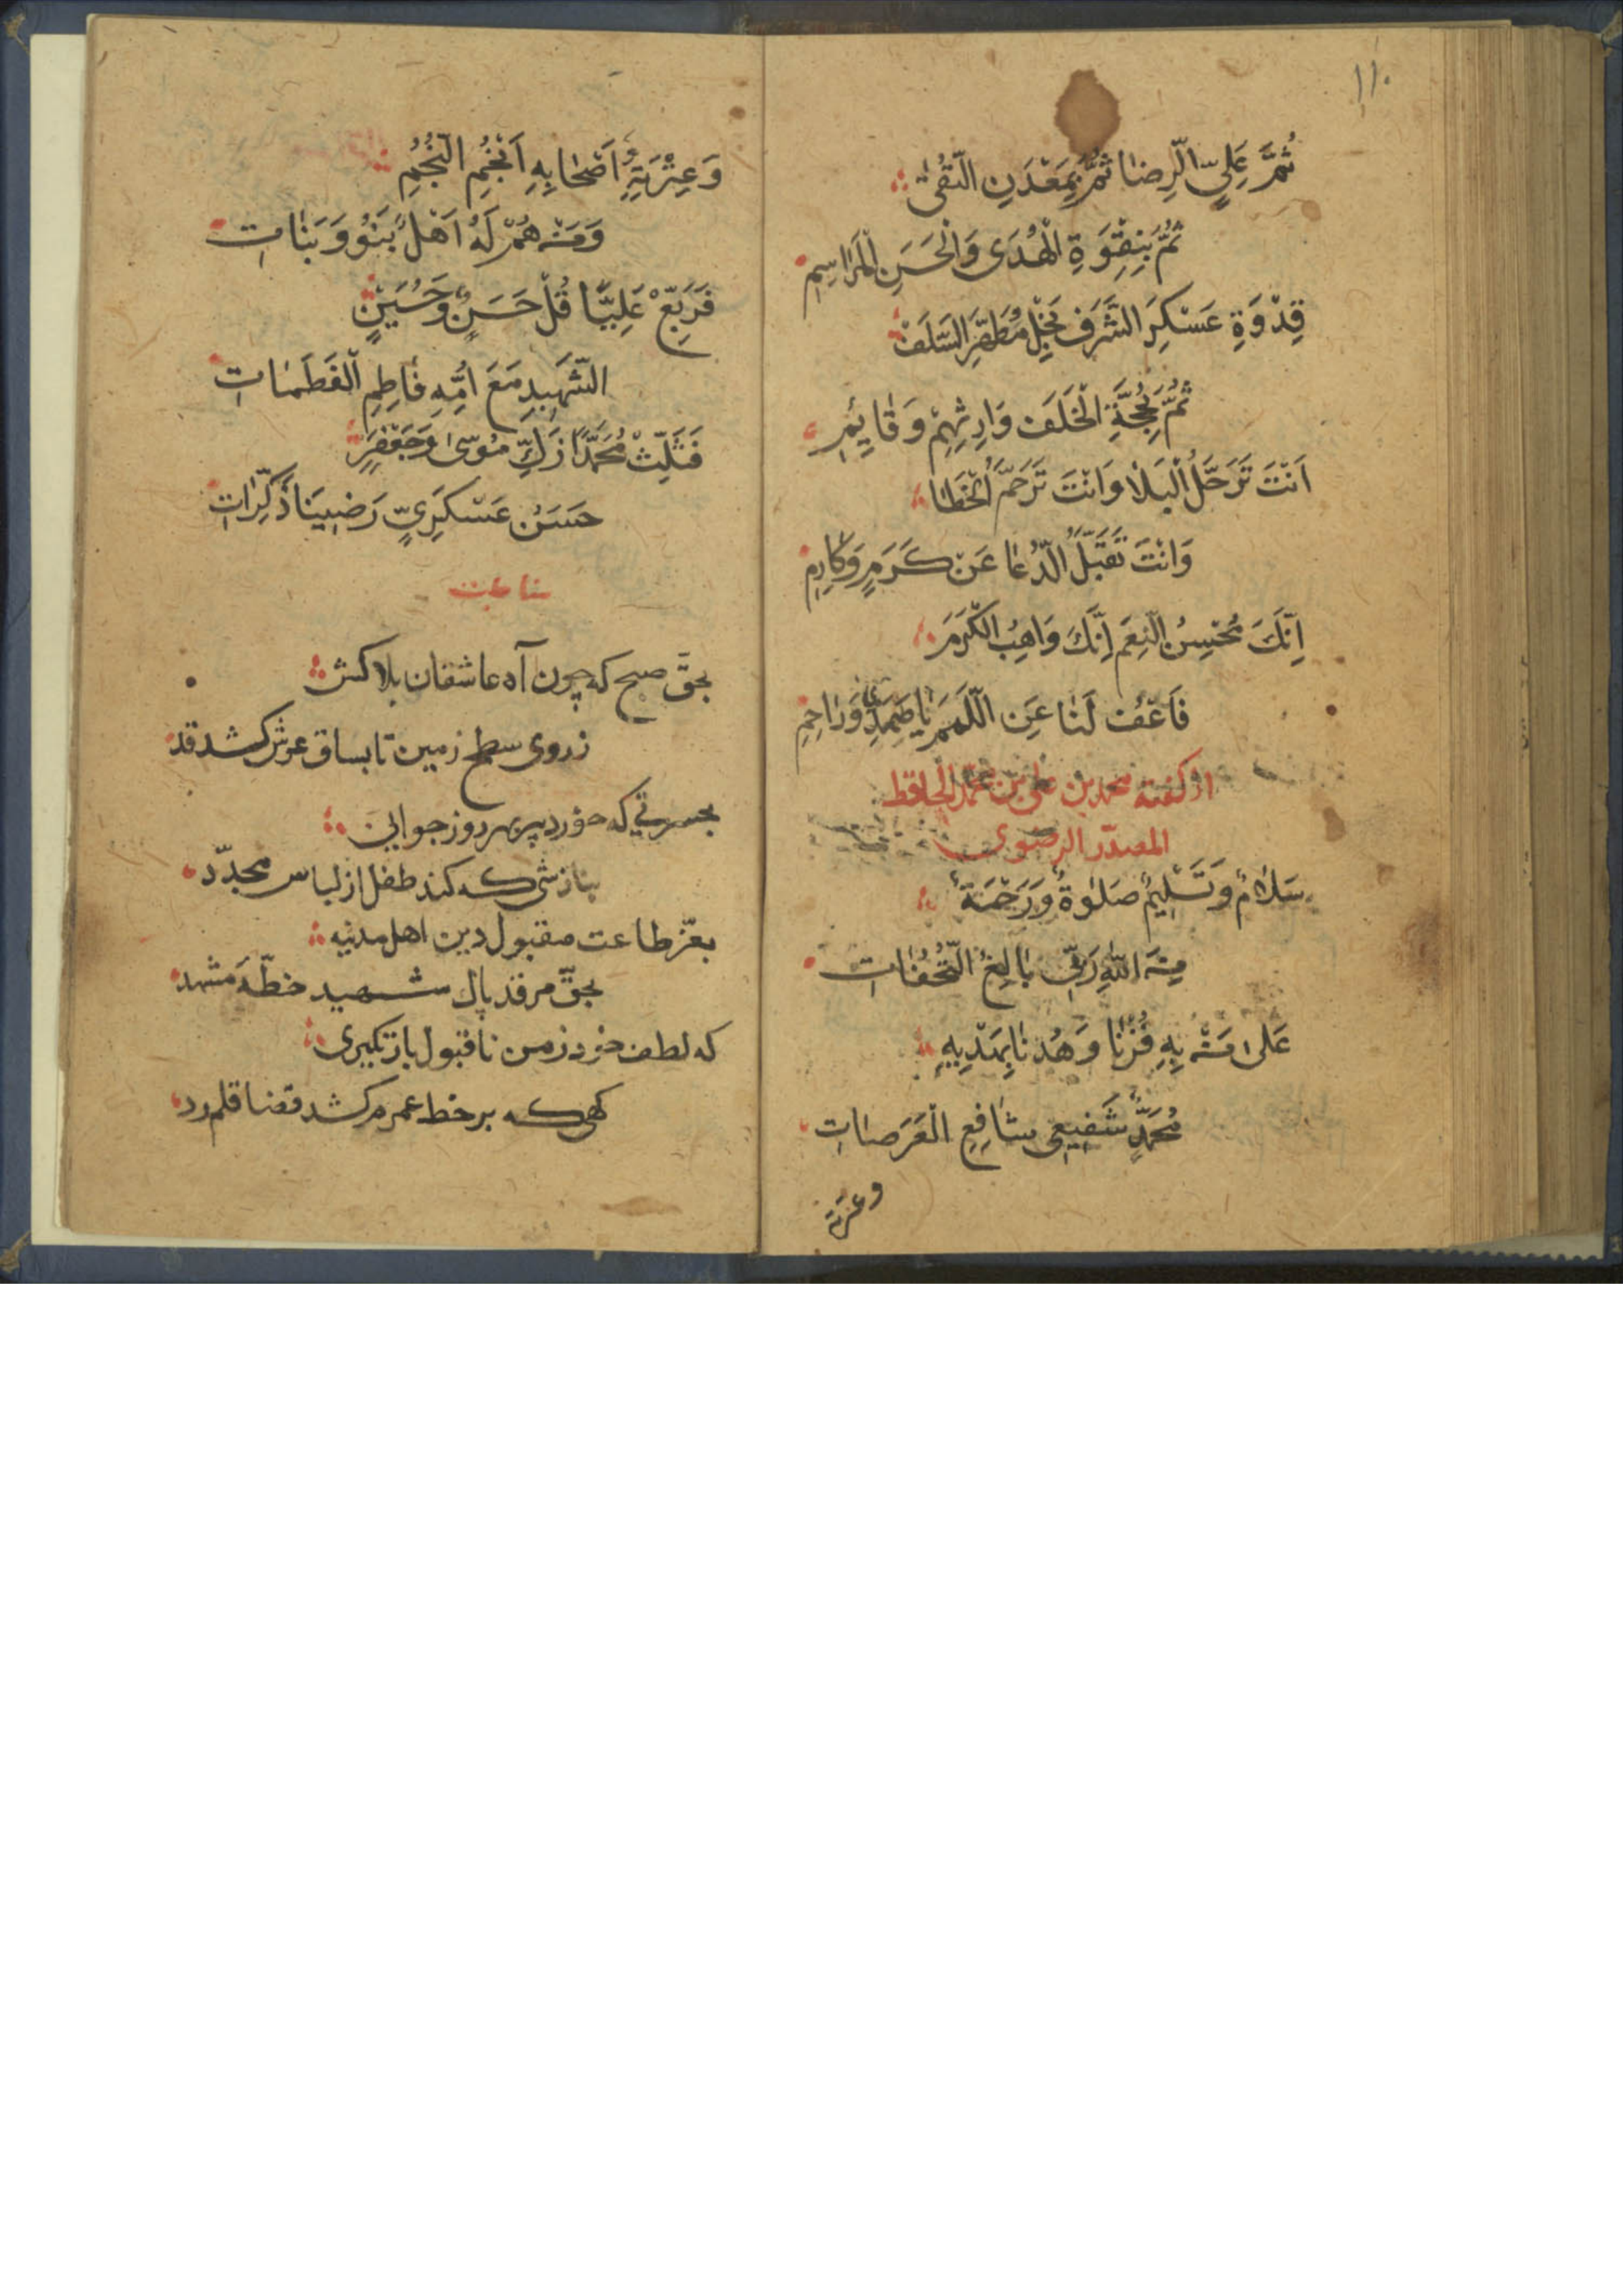 ۱۱۰
ثُمَّ عَلِيِّ الرِّضَا ثُمَّ بِمَعْدَنِ التُّقٰى
ثُمَّ بِنِقْوَةِ الْهُدَى وَالْحَسَنِ الْمَرَاسِمِ
قِدْوَةِ عَسْكَرِ الشَّرَفِ نَجْلِ مُطَهَّرِ السَّلَفْ
ثُمَّ بِحُجَّةِ الْخَلَفِ وَارِثِهِمْ وَقَايِمِ
اَنْتَ تَرَحَّلُ الْبَلَا وَانْتَ تَرَحَّمُ الْخَطَا
وَانْتَ تَقَبَّلُ الدُّعَا عَنْ كَرَمٍ وَكَارِمِ
اِنَّكَ مُحْسِنُ النِّعَمِ اِنَّكَ وَاهِبُ الْكَرَمَ
فَاعْفُ لَنَا عَنِ اللَّمَمِ يَا صَمَدِي وَرَاحِمِ
از گفته محمد بن علی بن محمد الحافظ
المصدّر الرضوی
سَلَامٌ وَتَسْلِيمٌ صَلٰوةٌ وَرَحْمَةٌ
مِنَ اللّٰهِ رَبِّي بَالِغُ التُّحُفَاتِ
عَلٰى مَنْ بِهِ فُزْنَا وَهُدْنَا بِهَدْيِهِ
مُحَمَّدٍ شَفِيعِي شَافِعِ الْعَرَصَاتِ
وعترته
وَعِتْرَتِهِ اَصْحَابِهِ اَنْجُمِ النُّجُمِ
وَمَنْ هُمْ لَهُ اَهْلٌ بَنُو وَبَنَاتِ
فَرَبِّعْ عَلِيًّا قُلْ حَسَنٍ وَحُسَيْنٍ
الشَّهِيدِ مَعَ اُمِّهِ فَاطِمِ الْفَطَمَاتِ
فَثَلِّثْ مُحَمَّدًا زَكِّ مُوسٰى وَجَعْفَرٍ
حَسَنْ عَسْكَرِيٍّ رَضِينَا ذَكِرَاتِ
مناجات
بحقّ صبح که چون آه عاشقان بلاکش
زروی سطح زمین تا بساق عرش کشد قد
بحسرتی که خورد پیر بهر روز جوانی
بنازشی که کند طفل از لباس مجدّد
بعزّ طاعت مقبول دین اهل مدنیه
بحقّ مرقد پاک شهید خطّهٔ مشهد
که لطف خود ز من ناقبول باز نگیری
گهی که بر خط عمرم کشد قضا قلم رد